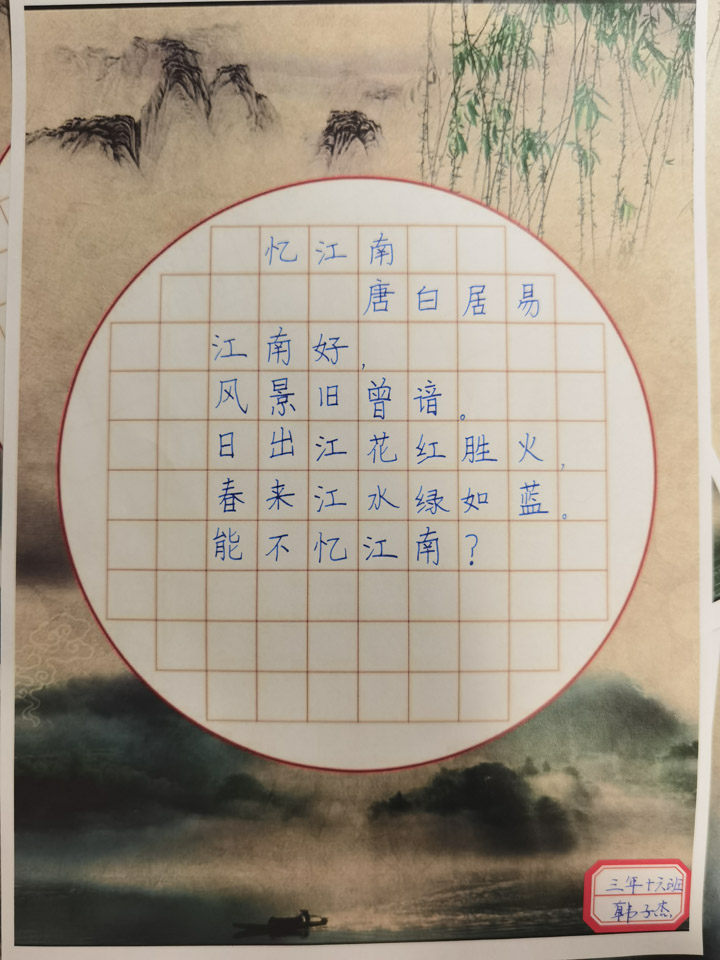 忆江南
唐白居易
江南好，
风景旧曾谙。
日出江花红胜火，
春来江水绿如蓝。
能不忆江南？
三年十六班
韩子杰